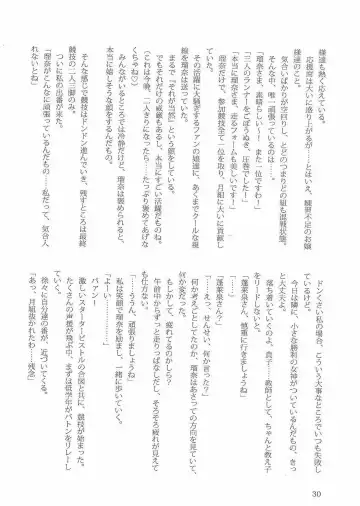 様達も熱く応えている。
応援席は大いに盛り上がるが――とはいえ、練習不足のお嬢
様達のこと。
気合いばかりが空回りし、とどのつまりどの組も混戦状態。
そんな中、唯一頑張っているのは……。
「瑠奈さま、素晴らしい～～　また一位ですわ！」
「三人のランナーをごぼうぬき、圧巻でした！」
「本当に瑠奈さま、走るフォームも美しいですー」
瑠奈だけで、参加競技全て一位を取り、月組に大いに貢献し
ていた。
その活躍に大騒ぎするファンの娘達に、あくまでクールな視
線を瑠奈は送っていた。
まるで「それが当然」という顔をしている。
でもそれだけの威厳もあるし、本当にすごい活躍だものね。
（これは今晩、二人きりになったら……たっぷり褒めてあげな
くちゃね♡）
みんながいるところでは冷静だけど、瑠奈は褒められると、
本当に嬉しそうな顔をするんだもの。
そんな感じで競技はドンドン進んでいき、残すところは最終
競技の二人三脚のみ。
ついに私の出番が来た。
「瑠奈がこんなに頑張っているんだもの――私だって、気合入
れないとね」
ドンくさい私の場合、こういう大事なところでいつも失敗し
ているけど。
今日は隣に、小さな勝利の女神がついているんだもの、きっ
と大丈夫よ。
落ち着いていくのよ、貴子――教師として、ちゃんと教え子
をリードしないと。
「蓬莱泉さん、慎重に行きましょうね」
「…………」
「蓬莱泉さん？」
「……えっ、せんせい、何か言った？」
何か考えごとしてたのか、瑠奈はあさっての方向を見ていて、
何か変だった。
もしかして、疲れてるのかしら？
午前中からずっと走りっぱなしだし、そろそろ疲れが見えて
も仕方ない。
「……ううん、頑張りましょうね」
私は笑顔で瑠奈を励まし、一緒に歩いていく。
「よーい………………」
パアンー！
激しいスターターピストルの合図と共に、競技が始まった。
たくさんの声援が飛ぶ中、まずは低学年がバトンをリレーし
ていく。
徐々に自分達の番が、近づいてくる。
「あっ、月組抜かれたわ……残念」
30